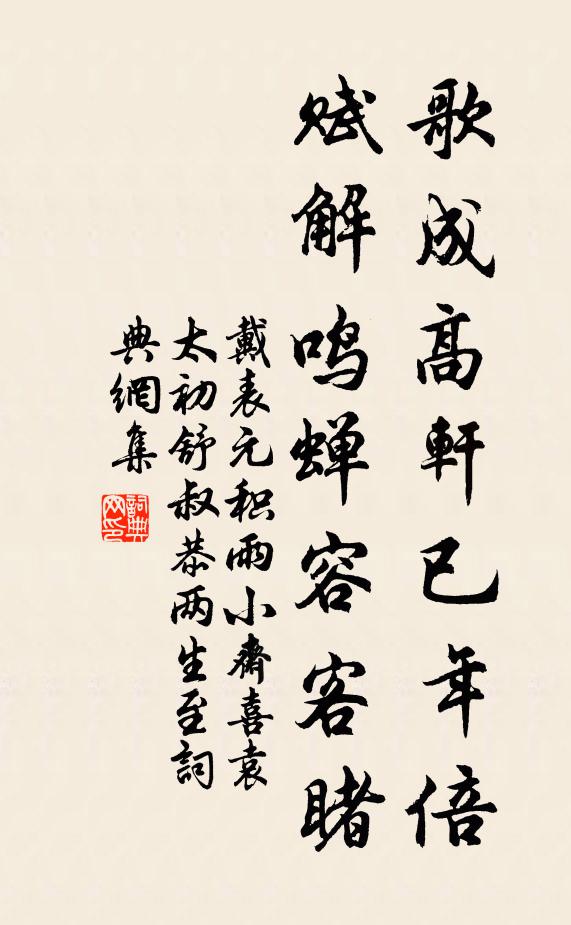 歌成高軒已年倍
赋解鸣蝉容客睹
戴表元积雨小齋喜袁
太初舒叔恭两生至詞
典網集
詞典網印